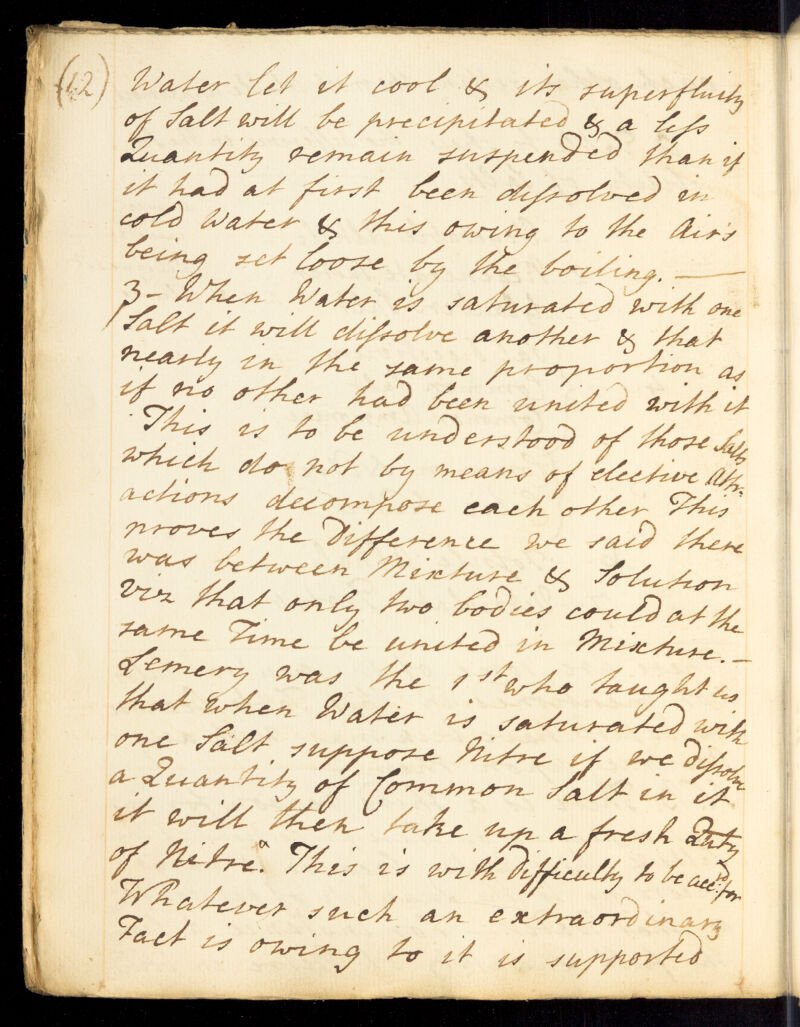 (12)
Water let it cool & its superfluity
of Salt will be precipitated & a less
Quantity remain suspended than if
it had at first been dissolved in
cold Water & this owing to the Air's
being set loose by the boiling. —
3 - When Water is saturated with one
Salt it will dissolve another & that
nearly in the same proportion as
if no other had been united with it
This is to be understood of those Salts
which do not by means of elective Attr-
actions decompose each other This
proves the Difference we said there
was between Mixture & Solution
viz that only two bodies could at the
same Time be united in Mixture. —
Lemery was the 1st who taught us
that when Water is saturated with
one Salt suppose Nitre if we dissolve
a Quantity of Common Salt in it
it will then take up a fresh Quty
of Nitre. This is with difficulty to be accd. for
Whatever such an extraordinary
Fact is owing to it is supported